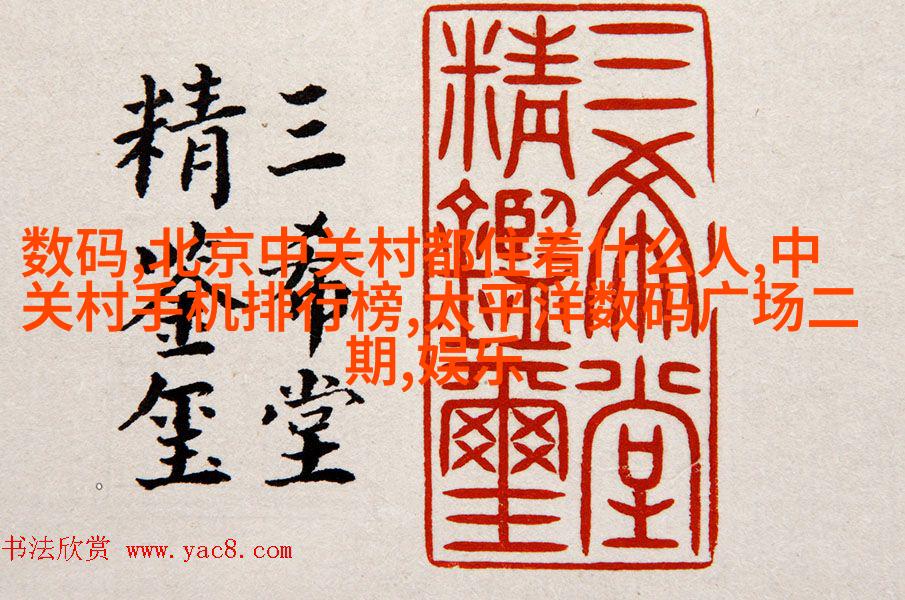 三希堂
精鉴玺
三希堂
精鑑璽
数码,北京中关村都住着什么人,中
关村手机排行榜,太平洋数码广场二
期,娱乐
书法欣赏 www.yac8.com